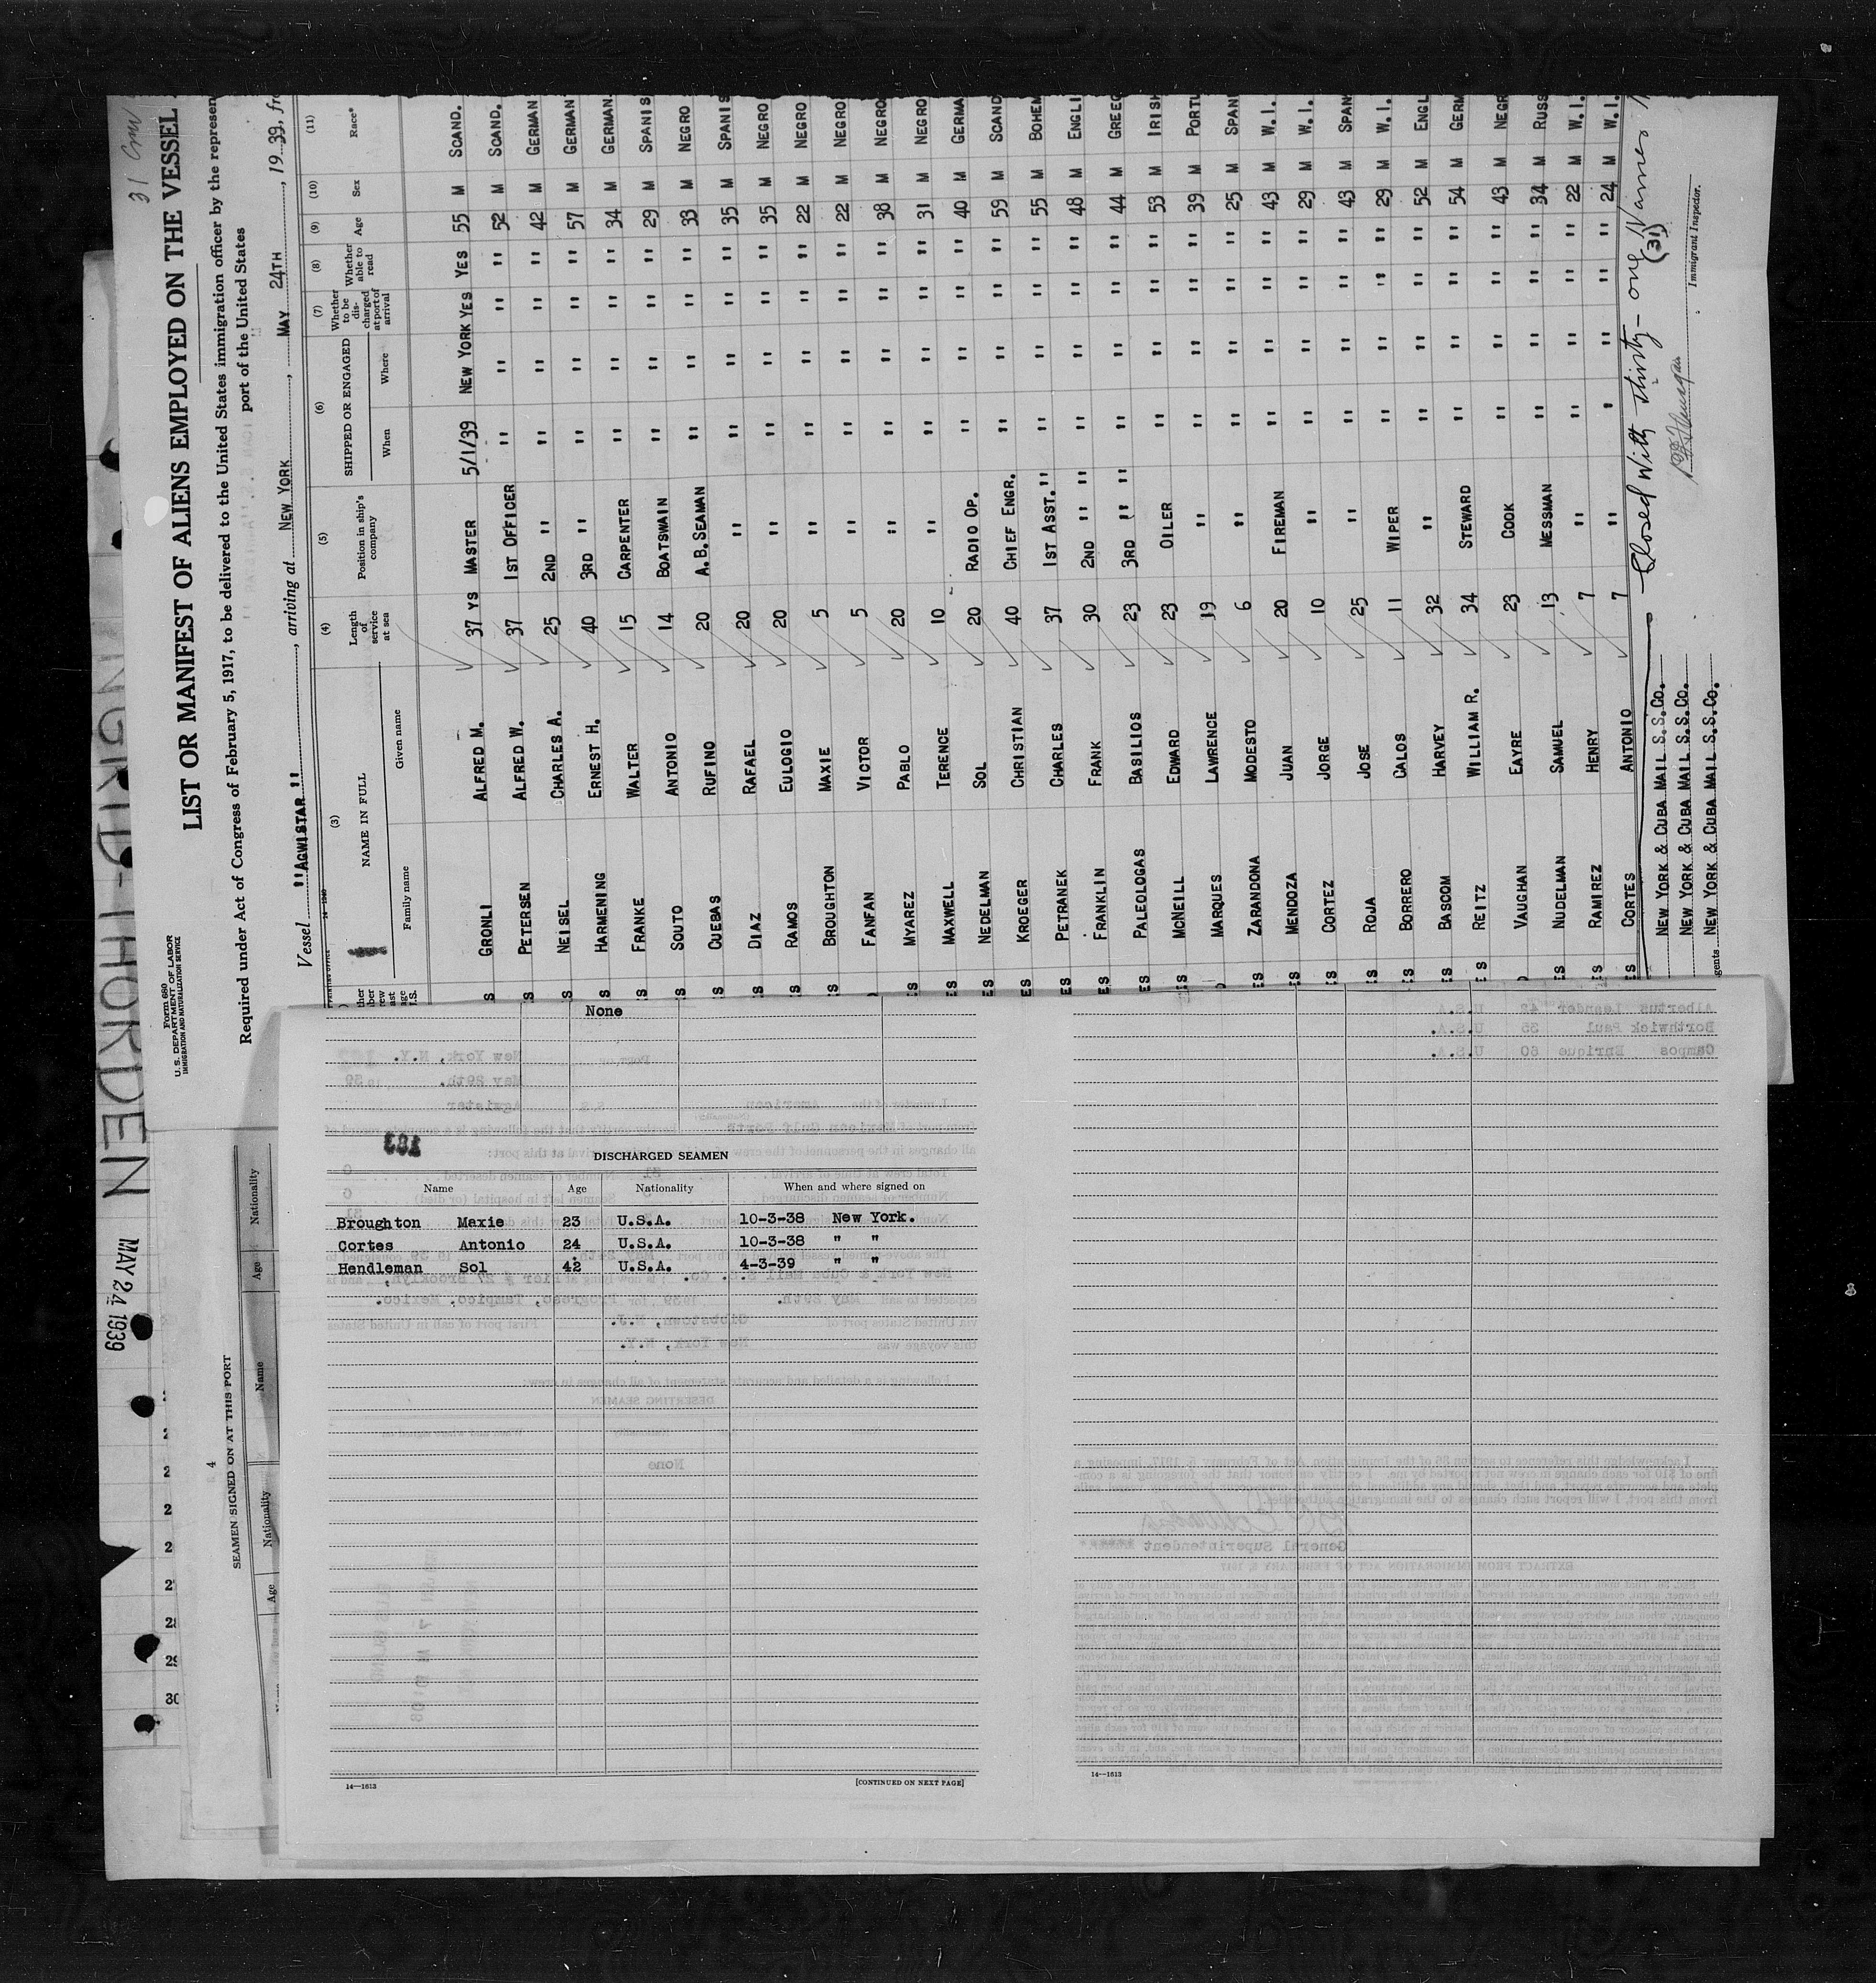 31 Crew
Form 680
U. S. DEPARTMENT OF LABOR
IMMIGRATION AND NATURALIZATION SERVICE
LIST OR MANIFEST OF ALIENS EMPLOYED ON THE VESSEL
Required under Act of Congress of February 5, 1917, to be delivered to the United States immigration officer by the represen
port of the United States
Vessel "AGWISTAR", arriving at NEW YORK, MAY 24TH, 19 39, fr
(3) (4) (5) (6) (7) (8) (9) (10) (11)
NAME IN FULL Length of service at sea Position in ship's company SHIPPED OR ENGAGED Whether to be discharged at port of arrival Whether able to read Age Sex Race*
Family name Given name When Where
GRONLI ALFRED M. 37 YS MASTER 5/1/39 NEW YORK YES YES 55 M SCAND.
PETERSEN ALFRED W. 37 1ST OFFICER " " " " 52 M SCAND.
NEISEL CHARLES A. 25 2ND " " " " " 42 M GERMAN
HARMENING ERNEST H. 40 3RD " " " " " 57 M GERMAN
FRANKE WALTER 15 CARPENTER " " " " 34 M GERMAN.
SOUTO ANTONIO 14 BOATSWAIN " " " " 29 M SPANIS
CUEBAS RUFINO 20 A.B. SEAMAN " " " " 33 M NEGRO
DIAZ RAFAEL 20 " " " " " 35 M SPANIS
RAMOS EULOGIO 20 " " " " " 35 M NEGRO
BROUGHTON MAXIE 5 " " " " " 22 M NEGRO
FANFAN VICTOR 5 " " " " " 22 M NEGRO
MYAREZ PABLO 20 " " " " " 38 M NEGRO
MAXWELL TERENCE 10 " " " " " 31 M NEGRO
NEDELMAN SOL 20 RADIO OP. " " " " 40 M GERMA
KROEGER CHRISTIAN 40 CHIEF ENGR. " " " " 59 M SCAND
PETRANEK CHARLES 37 1ST ASST. " " " " " 55 M BOHEM
FRANKLIN FRANK 30 2ND " " " " " " 48 M ENGLI
PALEOLOGAS BASILIOS 23 3RD " " " " " " 44 M GREEC
MCNEILL EDWARD 23 OILER " " " " 53 M IRISH
MARQUES LAWRENCE 19 " " " " " 39 M PORTU
ZARANDONA MODESTO 6 " " " " " 25 M SPANI
MENDOZA JUAN 20 FIREMAN " " " " 43 M W.I.
CORTEZ JORGE 10 " " " " " 29 M W.I.
ROJA JOSE 25 " " " " " 43 M SPAN
BORRERO CALOS 11 WIPER " " " " 29 M W.I.
BASCOM HARVEY 32 " " " " " 52 M ENGL
REITZ WILLIAM R. 34 STEWARD " " " " 54 M GERM
VAUGHAN EAYRE 23 COOK " " " " 43 M NEGR
NUDELMAN SAMUEL 13 MESSMAN " " " " 34 M RUSS
RAMIREZ HENRY 7 " " " " " 22 M W.I.
CORTES ANTONIO 7 " " " " " 24 M W.I.
Closed With Thirty-one Names
(31)
Immigrant Inspector.
NEW YORK & CUBA MAIL S.S.CO.
NEW YORK & CUBA MAIL S.S.CO.
NEW YORK & CUBA MAIL S.S.CO.
INGRID-HORDEN
MAY 24 1939
4
SEAMEN SIGNED ON AT THIS PORT
Name Age Nationality
Age Nationality
28
29
30
None
183
DISCHARGED SEAMEN
Name Age Nationality When and where signed on
Broughton Maxie 23 U.S.A. 10-3-38 New York.
Cortes Antonio 24 U.S.A. 10-3-38 " "
Hendleman Sol 42 U.S.A. 4-3-39 " "
14—1613 [CONTINUED ON NEXT PAGE]
14—1613